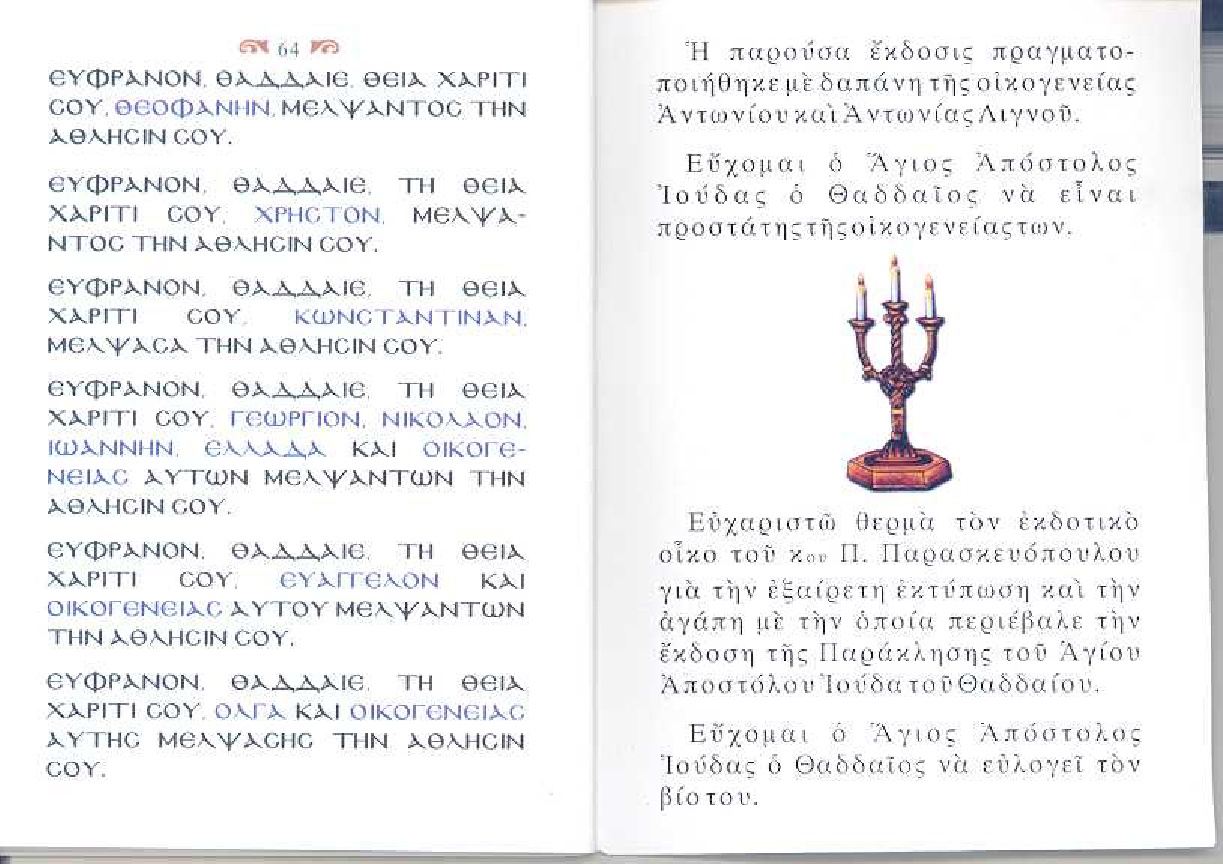 64
ΕΥΦΡΑΝΟΝ, ΘΑΔΔΑΙΕ, ΘΕΙΑ ΧΑΡΙΤΙ
ΣΟΥ, ΘΕΟΦΑΝΗΝ, ΜΕΛΨΑΝΤΟΣ ΤΗΝ
ΑΘΛΗΣΙΝ ΣΟΥ.
ΕΥΦΡΑΝΟΝ, ΘΑΔΔΑΙΕ, ΤΗ ΘΕΙΑ
ΧΑΡΙΤΙ ΣΟΥ, ΧΡΗΣΤΟΝ, ΜΕΛΨΑ-
ΝΤΟΣ ΤΗΝ ΑΘΛΗΣΙΝ ΣΟΥ.
ΕΥΦΡΑΝΟΝ, ΘΑΔΔΑΙΕ, ΤΗ ΘΕΙΑ
ΧΑΡΙΤΙ ΣΟΥ, ΚΩΝΣΤΑΝΤΙΝΑΝ,
ΜΕΛΨΑΣΑ ΤΗΝ ΑΘΛΗΣΙΝ ΣΟΥ.
ΕΥΦΡΑΝΟΝ, ΘΑΔΔΑΙΕ, ΤΗ ΘΕΙΑ
ΧΑΡΙΤΙ ΣΟΥ, ΓΕΩΡΓΙΟΝ, ΝΙΚΟΛΑΟΝ,
ΙΩΑΝΝΗΝ, ΕΛΛΑΔΑ ΚΑΙ ΟΙΚΟΓΕ-
ΝΕΙΑΣ ΑΥΤΩΝ ΜΕΛΨΑΝΤΩΝ ΤΗΝ
ΑΘΛΗΣΙΝ ΣΟΥ.
ΕΥΦΡΑΝΟΝ, ΘΑΔΔΑΙΕ, ΤΗ ΘΕΙΑ
ΧΑΡΙΤΙ ΣΟΥ, ΕΥΑΓΓΕΛΟΝ ΚΑΙ
ΟΙΚΟΓΕΝΕΙΑΣ ΑΥΤΟΥ ΜΕΛΨΑΝΤΩΝ
ΤΗΝ ΑΘΛΗΣΙΝ ΣΟΥ.
ΕΥΦΡΑΝΟΝ, ΘΑΔΔΑΙΕ, ΤΗ ΘΕΙΑ
ΧΑΡΙΤΙ ΣΟΥ, ΟΛΓΑ ΚΑΙ ΟΙΚΟΓΕΝΕΙΑΣ
ΑΥΤΗΣ ΜΕΛΨΑΣΗΣ ΤΗΝ ΑΘΛΗΣΙΝ
ΣΟΥ.
Ἡ παρούσα ἔκδοσις πραγματο-
ποιήθηκε μὲ δαπάνη τῆς οἰκογενείας
Ἀντωνίου καὶ Ἀντωνίας Λιγνοῦ.
Εὔχομαι ὁ Ἅγιος Ἀπόστολος
Ἰούδας ὁ Θαδδαῖος νὰ εἶναι
προστάτης τῆς οἰκογενείας των.
Εὐχαριστῶ θερμὰ τὸν ἐκδοτικὸ
οἶκο τοῦ κου Π. Παρασκευόπουλου
γιὰ τὴν ἐξαίρετη ἐκτύπωση καὶ τὴν
ἀγάπη μὲ τὴν ὁποία περιέβαλε τὴν
ἔκδοση τῆς Παράκλησης τοῦ Ἁγίου
Ἀποστόλου Ἰούδα τοῦ Θαδδαίου.
Εὔχομαι ὁ Ἅγιος Ἀπόστολος
Ἰούδας ὁ Θαδδαῖος νὰ εὐλογεῖ τὸν
βίο του.